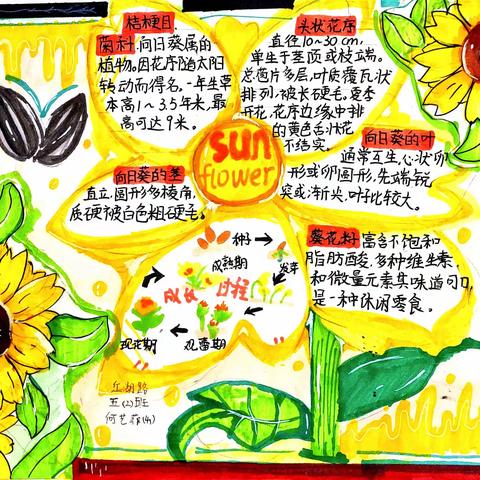 桔梗目,
菊科,向日葵属的
植物。因花序随太阳
转动而得名。一年生草
本高1~3.5米,最
高可达9米。
头状花序
直径10~30cm,
单生于茎顶或枝端。
总苞片多层,叶质覆瓦状
排列,被长硬毛。夏季
开花,花序边缘中排
的黄色舌状花
不结实。
sun
flower
向日葵的茎
直立,圆形多棱角,
质硬被白色粗硬毛。
向日葵的叶
通常互生,心状卵
形或卵圆形,先端锐
突或渐尖,叶子比较大。
葵花籽 富含不饱和
脂肪酸、多种维生素
和微量元素其味道可口,
是一种休闲零食。
种子
发芽
成熟期
成长过程
现花期
现蕾期
五(2)班
何艺菲(44)